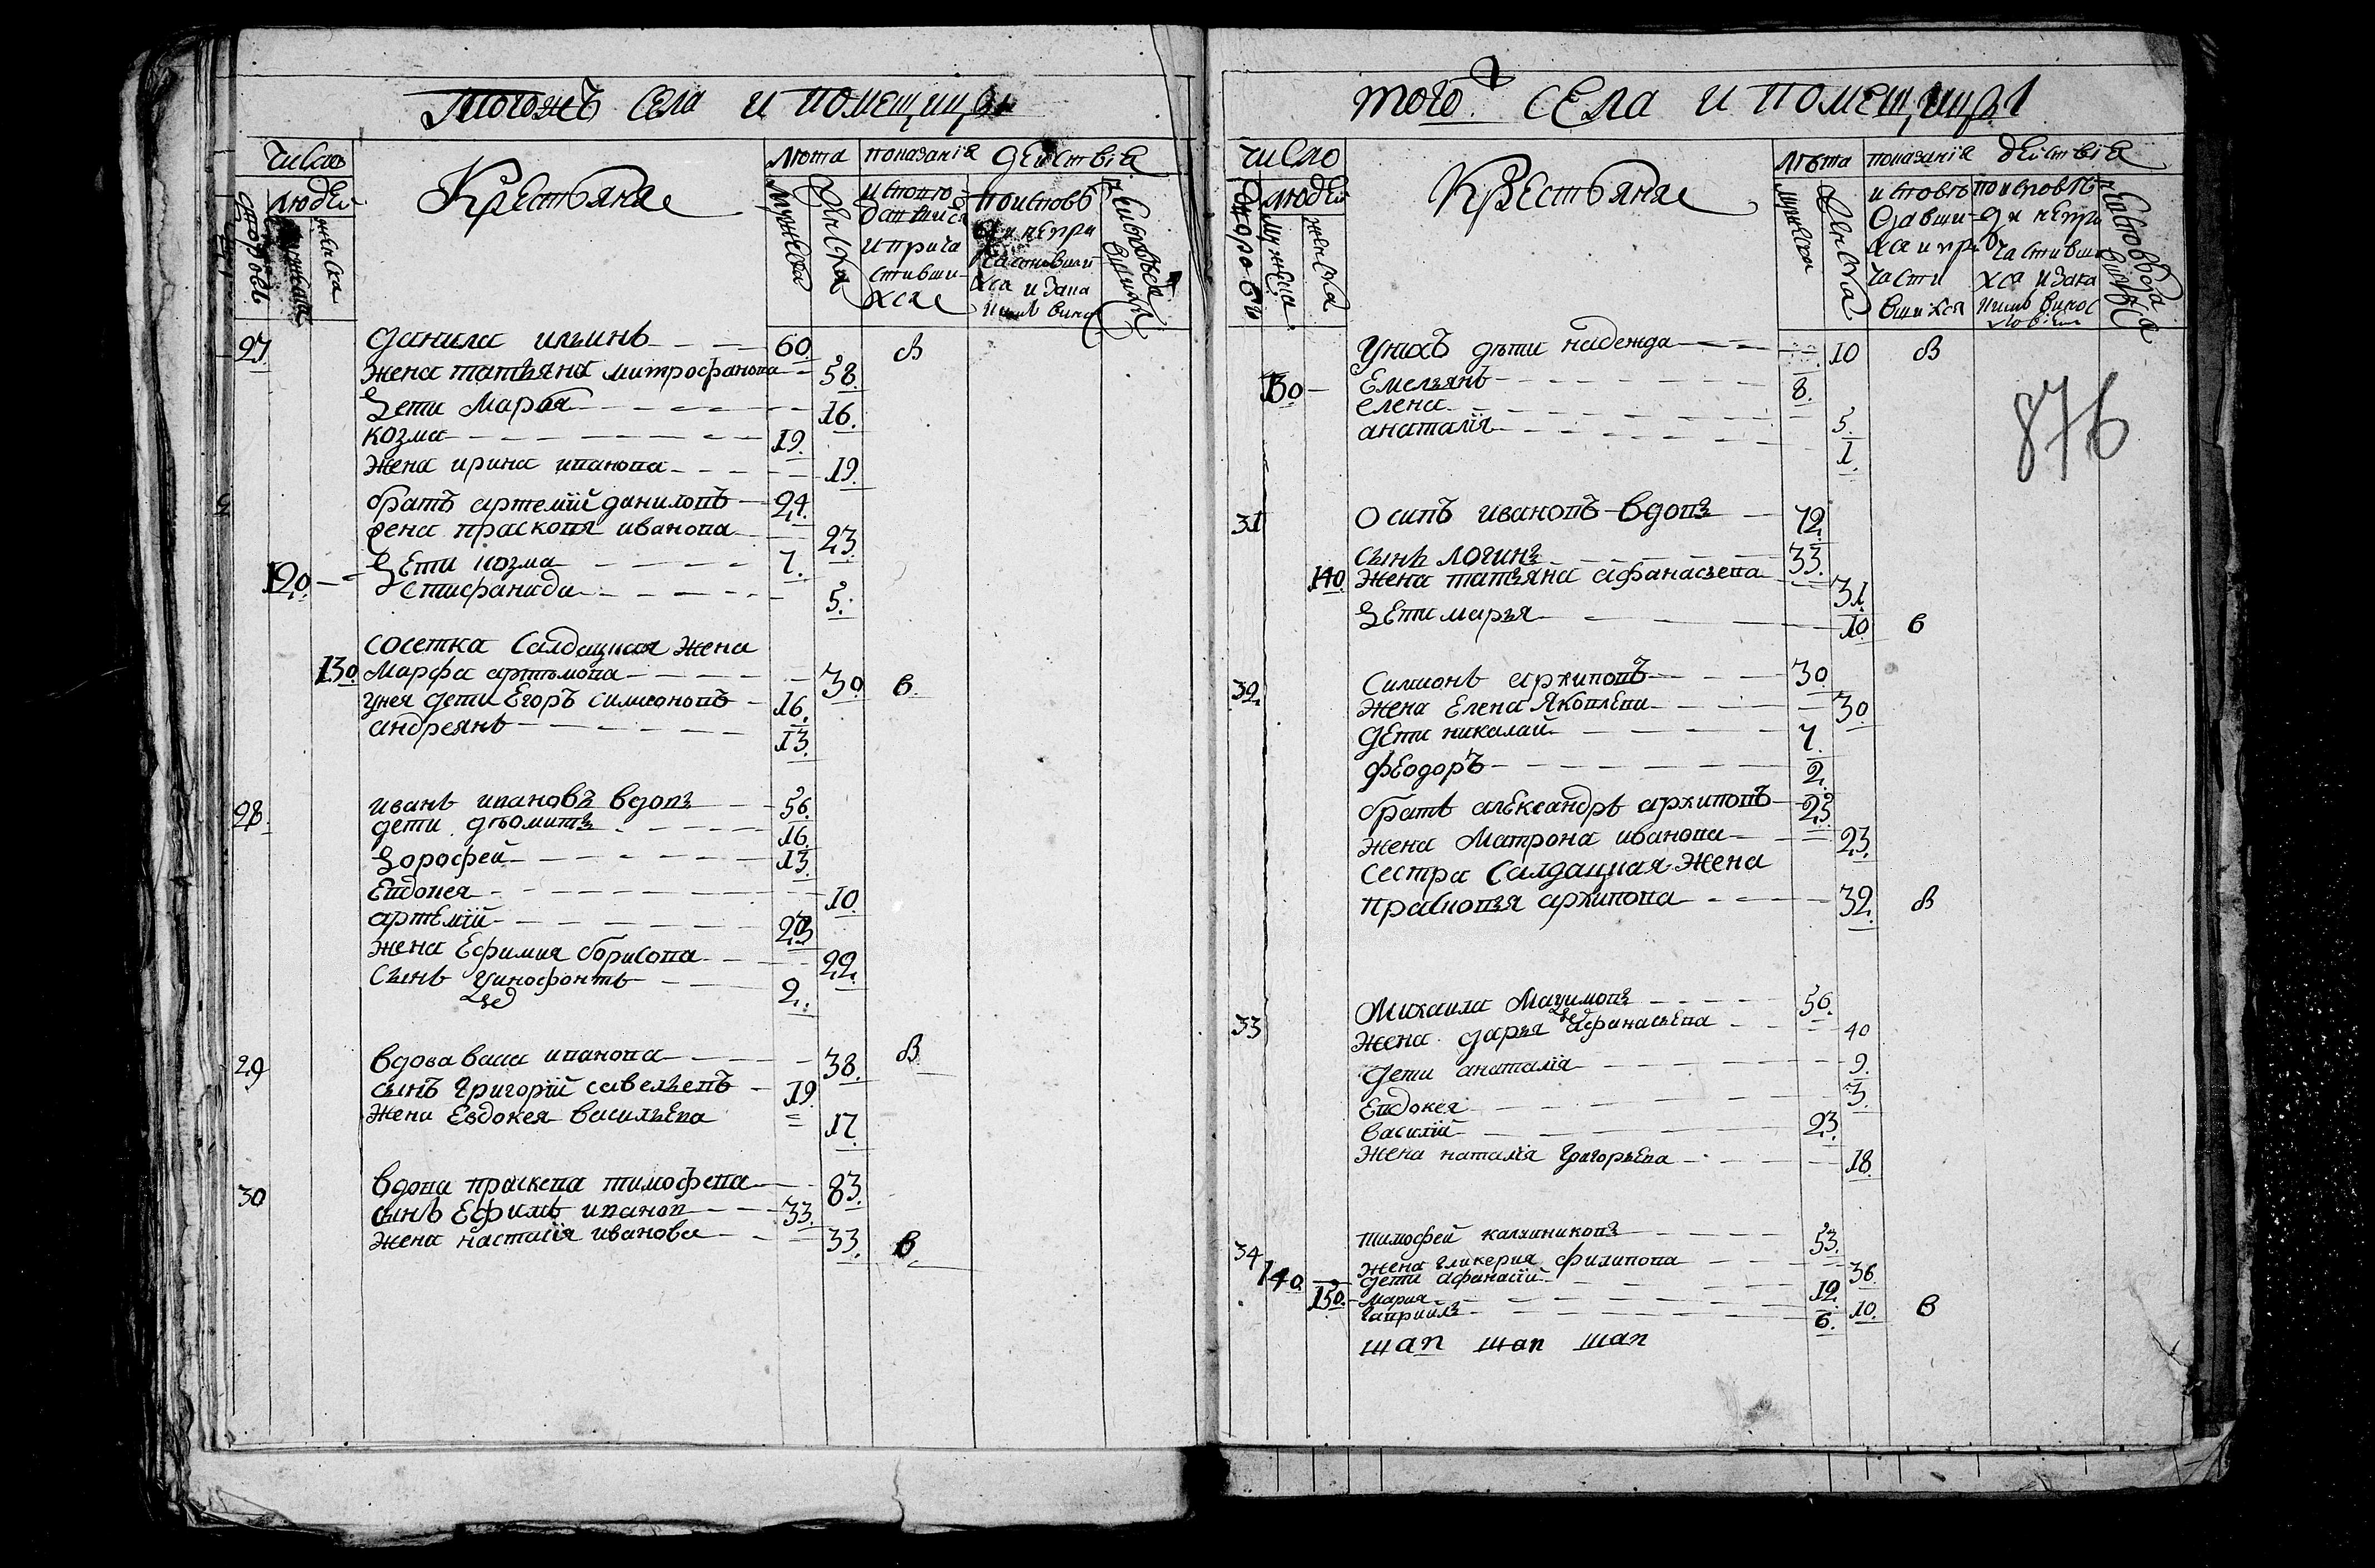 Тогожъ села и помещицы
Число
людей
дворовъ
мужеска
женска
Крестьяне
Лѣта
мужеска
женска
показанїе действїя
исповѣдавшиися и причастившихся
27 Данила ильинъ 60 в
жена татьяна митрофанова 58
Дети Марья 16
козма 19
жена ирина иванова 19
братъ артемїй даниловъ 24
жена прасковя иванова 23
120 Дети козма 7
епистфанида 5
соседка Салдацкая жена
130 Марфа артѣмова 30 в
унея дети Егоръ Симионовъ 16
андреянъ 13
28 иванъ ивановъ вдовъ 56
дети диомитъ 16
Дорофей 13
Евдокея 10
артемїй 23
жена Ефимия борисова 22
Сынъ Ксинофонтъ 2
29 вдова васа иванова 38 в
сынъ Григорїй савельевъ 19
жена Евдокея васильева 17
30 вдова праскева тимофева 83
сынъ Ефимъ иванов 33
жена настасїя иванова 33 в
того ж села и помещицы
Число
людей
дворовъ
мужеска
женска
Крестьяне
Лѣта
мужеска
женска
показанїе действїя
исповѣдавшихся и причастившихся
по исповѣди не причастившихся и за каким винословием
876
Унихъ дѣти надежда 10 в
130 Емельянъ 8
елена 5
анаталїя 1
31 Осипъ ивановъ вдовъ 72
сынъ логинъ 33
140 жена татьяна афанасьева 31
Дети марья 10 в
32 Симионъ архиповъ 30
жена Елена Яковлева 30
Дети николай 7
феодоръ 2
братъ александръ архиповъ 23
жена Матрона иванова 23
сестра Салдацкая жена
прасковья архипова 32 в
33 Михаила Маѯимовъ 56
жена дарья афанасьева 40
Дети анаталїя 9
Евдокея 3
василїй 23
жена наталїя Григорьева 18
34 тимофей калинниковъ 53
жена гликерия филипова 36
140 дети афанасїй 12
150 мария 10 в
гаврийлъ 6
шап шап шап